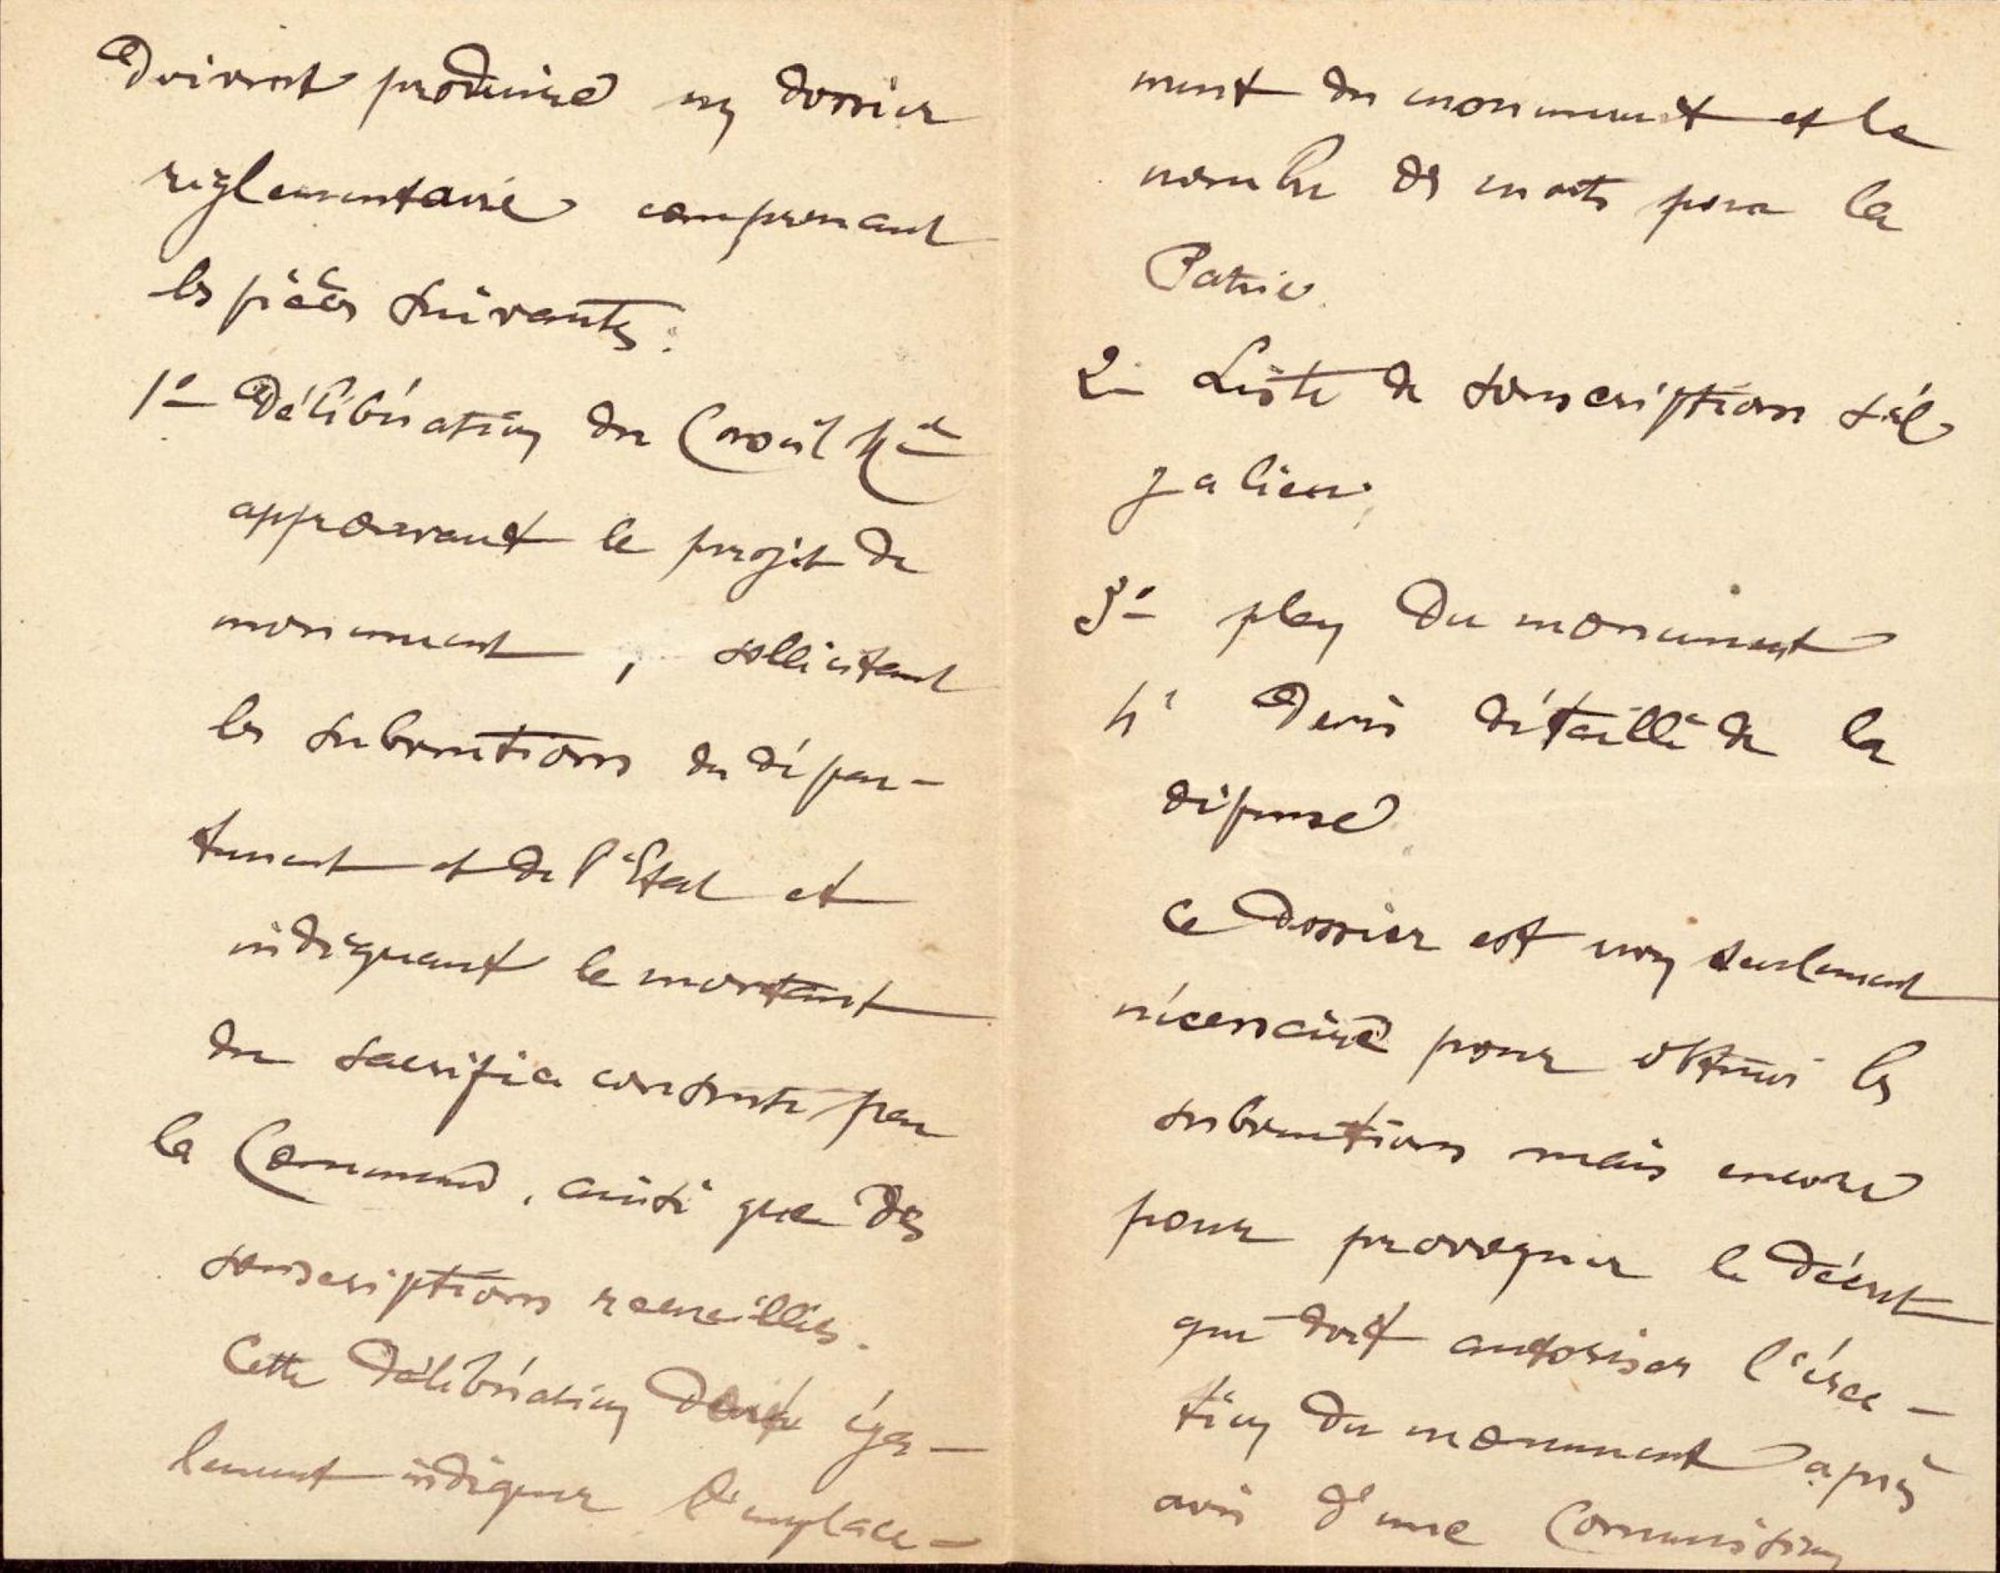 Doivent produire un dossier
réglementaire comprenant
les pièces suivantes :
1º Délibération du Conseil Mal
approuvant le projet de
monument, sollicitant
les subventions du dépar-
tement et de l'Etat et
indiquant le montant
du sacrifice consenti par
la Commune, ainsi que des
souscriptions recueillies.
Cette délibération devra éga-
lement indiquer l'emplace-
ment du monument et le
nombre de morts pour la
Patrie.
2º Liste de souscription s'il
y a lieu;
3º plan du monument
4º Devis détaillé de la
dépense.
Ce dossier est non seulement
nécessaire pour obtenir les
subventions mais encore
pour provoquer le décret
qui doit autoriser l'érec-
tion du monument après
avis d'une Commission